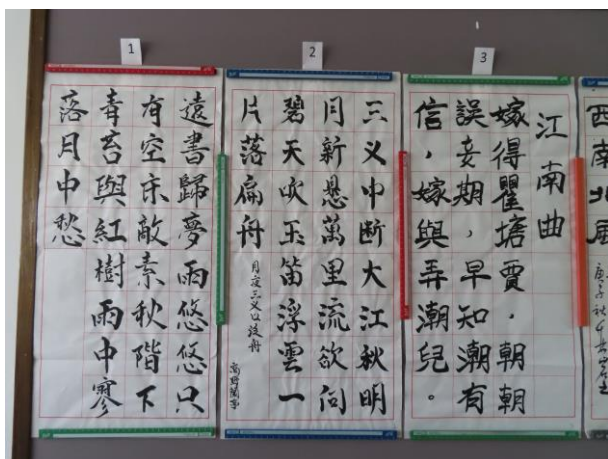 1
遠書歸夢兩悠悠只
有空床敵素秋階下
青苔與紅樹雨中寥
落月中愁
2
三叉中断大江秋明
月新懸萬里流欲向
碧天吹玉笛浮雲一
片落扁舟
月夜三叉口泛舟
高野蘭亭
3
江南曲
嫁得瞿塘賈，朝朝
誤妾期，早知潮有
信，嫁與弄潮兒。
西南北風
庚子秋